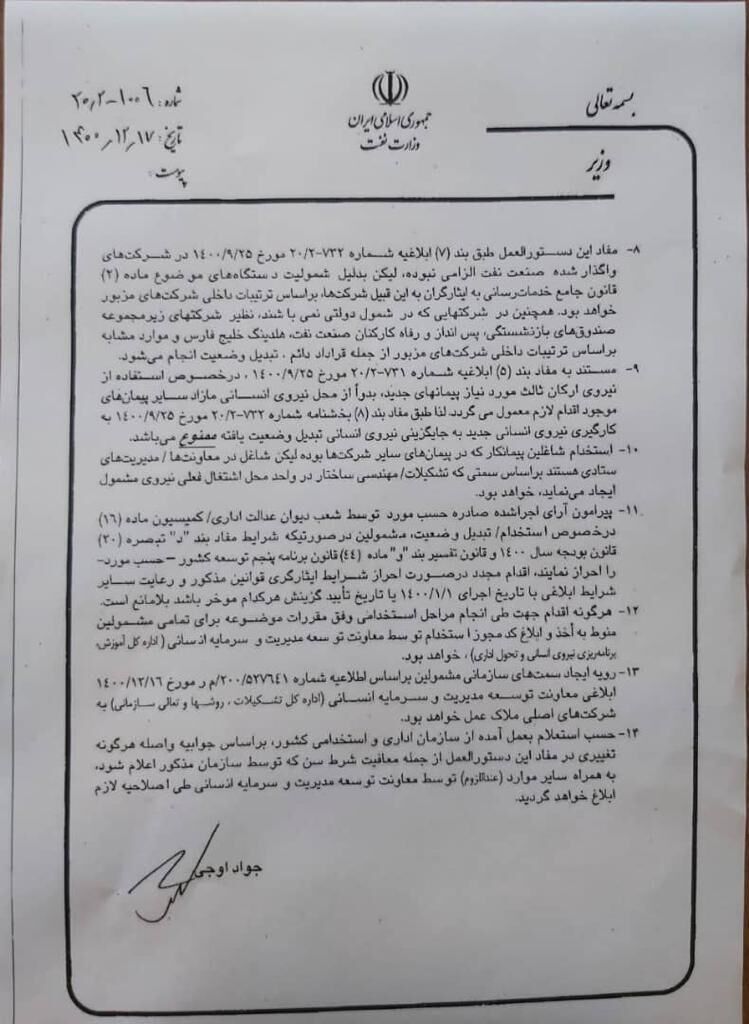 بسمه تعالی
جمهوری اسلامی ایران
وزارت نفت
وزیر
شماره: ۲۰/۲-۱۰۰۶
تاریخ: ۱۴۰۰/۱۲/۱۷
پیوست:
۸- مفاد این دستورالعمل طبق بند (۷) ابلاغیه شماره ۷۳۲-۲۰/۲ مورخ ۱۴۰۰/۹/۲۵ در شرکت‌های
واگذار شده صنعت نفت الزامی نبوده، لیکن بدلیل شمولیت دستگاه‌های موضوع ماده (۲)
قانون جامع خدمات‌رسانی به ایثارگران به این قبیل شرکت‌ها، براساس ترتیبات داخلی شرکت‌های مزبور
خواهد بود. همچنین در شرکتهایی که در شمول دولتی نمی باشند، نظیر شرکتهای زیرمجموعه
صندوق‌های بازنشستگی، پس انداز و رفاه کارکنان صنعت نفت، هلدینگ خلیج فارس و موارد مشابه
براساس ترتیبات داخلی شرکت‌های مزبور از جمله قراداد دائم ، تبدیل وضعیت انجام می‌شود.
۹- مستند به مفاد بند (۵) ابلاغیه شماره ۷۳۱-۲۰/۲ مورخ ۱۴۰۰/۹/۲۵ ، درخصوص استفاده از
نیروی ارکان ثالث مورد نیاز پیمانهای جدید، بدواً از محل نیروی انسانی مازاد سایر پیمان‌های
موجود اقدام لازم معمول می گردد. لذا طبق مفاد بند (۸) بخشنامه شماره ۷۳۲-۲۰/۲ مورخ ۱۴۰۰/۹/۲۵ به
کارگیری نیروی انسانی جدید به جایگزینی نیروی انسانی تبدیل وضعیت یافته ممنوع می‌باشد.
۱۰- استخدام شاغلین پیمانکار که در پیمان‌های سایر شرکت‌ها بوده لیکن شاغل در معاونت‌ها / مدیریت‌های
ستادی هستند براساس سمتی که تشکیلات/ مهندسی ساختار در واحد محل اشتغال فعلی نیروی مشمول
ایجاد می‌نماید، خواهد بود.
۱۱- پیرامون آرای اجراشده صادره حسب مورد توسط شعب دیوان عدالت اداری/ کمیسیون ماده (۱۶)
درخصوص استخدام/ تبدیل وضعیت، مشمولین درصورتیکه شرایط مفاد بند "د" تبصره (۲۰)
قانون بودجه سال ۱۴۰۰ و قانون تفسیر بند "و" ماده (۴۴) قانون برنامه پنجم توسعه کشور –حسب مورد-
را احراز نمایند، اقدام مجدد درصورت احراز شرایط ایثارگری قوانین مذکور و رعایت سایر
شرایط ابلاغی با تاریخ اجرای ۱۴۰۰/۱/۱ یا تاریخ تأیید گزینش هرکدام موخر باشد بلامانع است.
۱۲- هرگونه اقدام جهت طی انجام مراحل استخدامی وفق مقررات موضوعه برای تمامی مشمولین
منوط به أخذ و ابلاغ کد مجوز استخدام توسط معاونت توسعه مدیریت و سرمایه انسانی ( اداره کل آموزش،
برنامه‌ریزی نیروی انسانی و تحول اداری) ، خواهد بود.
۱۳- رویه ایجاد سمت‌های سازمانی مشمولین براساس اطلاعیه شماره ۲۰۰/۵۲۷۶۴۱/م ر مورخ ۱۴۰۰/۱۲/۱۶
ابلاغی معاونت توسعه مدیریت و سرمایه انسانی (اداره کل تشکیلات ، روشها و تعالی سازمانی) به
شرکت‌های اصلی ملاک عمل خواهد بود.
۱۴- حسب استعلام بعمل آمده از سازمان اداری و استخدامی کشور، براساس جوابیه واصله هرگونه
تغییری در مفاد این دستورالعمل از جمله معافیت شرط سن که توسط سازمان مذکور اعلام شود،
به همراه سایر موارد (عنداللزوم) توسط معاونت توسعه مدیریت و سرمایه انسانی طی اصلاحیه لازم
ابلاغ خواهد گردید.
جواد اوجی